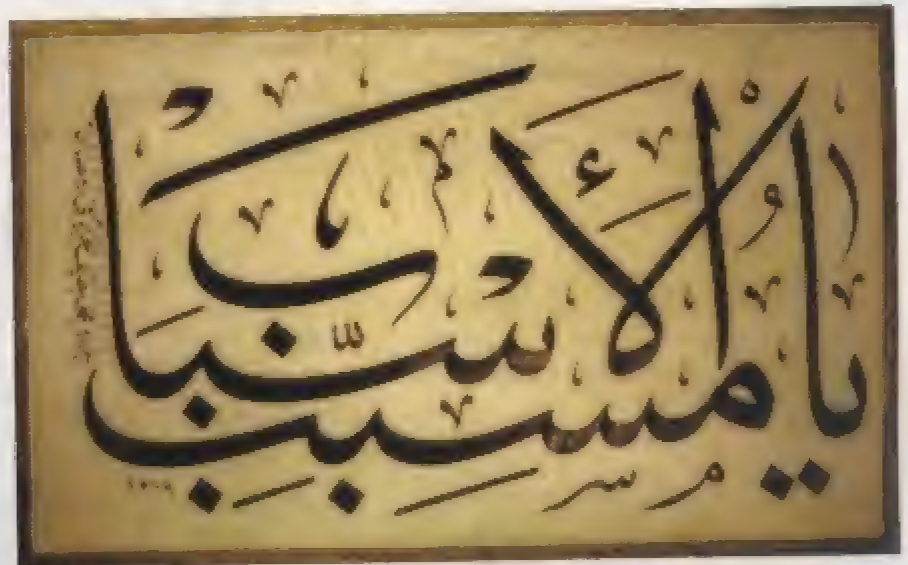 يا مسبب الأسباب